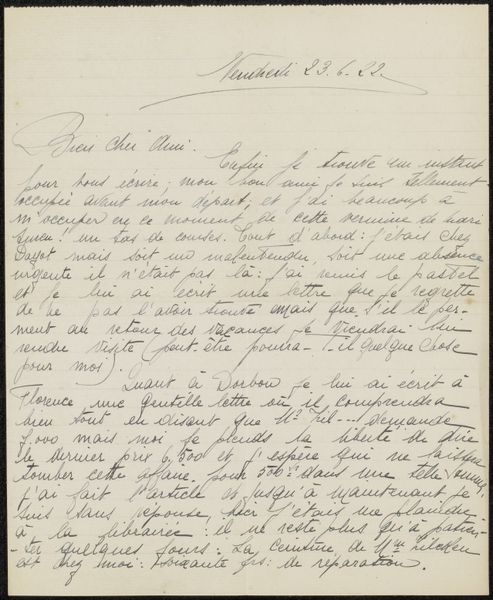 Vendredi 23.6.22.
Bien cher Ami.
Enfin je trouve un instant
pour vous écrire; mon bon ami je suis tellement
occupée avant mon départ, et j'ai beaucoup à
m'occuper en ce moment de cette vermine de mari
un tas de courses. Tout d'abord: j'étais chez
mais soit un malentendu, soit une absence
urgente il n'était pas là: j'ai remis le pastel
et je lui ai écrit une lettre que je regrette
de ne pas l'avoir trouvé mais que s'il le per-
met au retour des vacances je viendrai lui
rendre visite (peut être pourra-t-il quelque chose
pour moi).
Quant à Dorbon je lui ai écrit à
Florence, une gentille lettre où il comprendra
bien tout, en disant que Mr Zil--- demande
7.000 mais moi je prends la liberté de dire
le dernier prix 6.500 et j'espère qu'il ne laisse
tomber cette affaire pour 500! dans une telle
j'ai fait l'article et jusqu'à maintenant je
suis sans reponse, hier j'étais me plaindre
à la librairie: il ne reste plus qu'à patien-
-ter quelques jours: La ceinture de Mme Zilcken
est chez moi: soixante frs: de réparation.